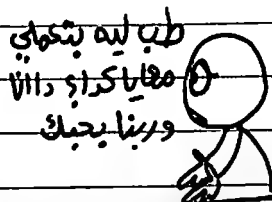 طب ليه بتكلمي
معايا كدا؟ دانا
وربنا بحبك